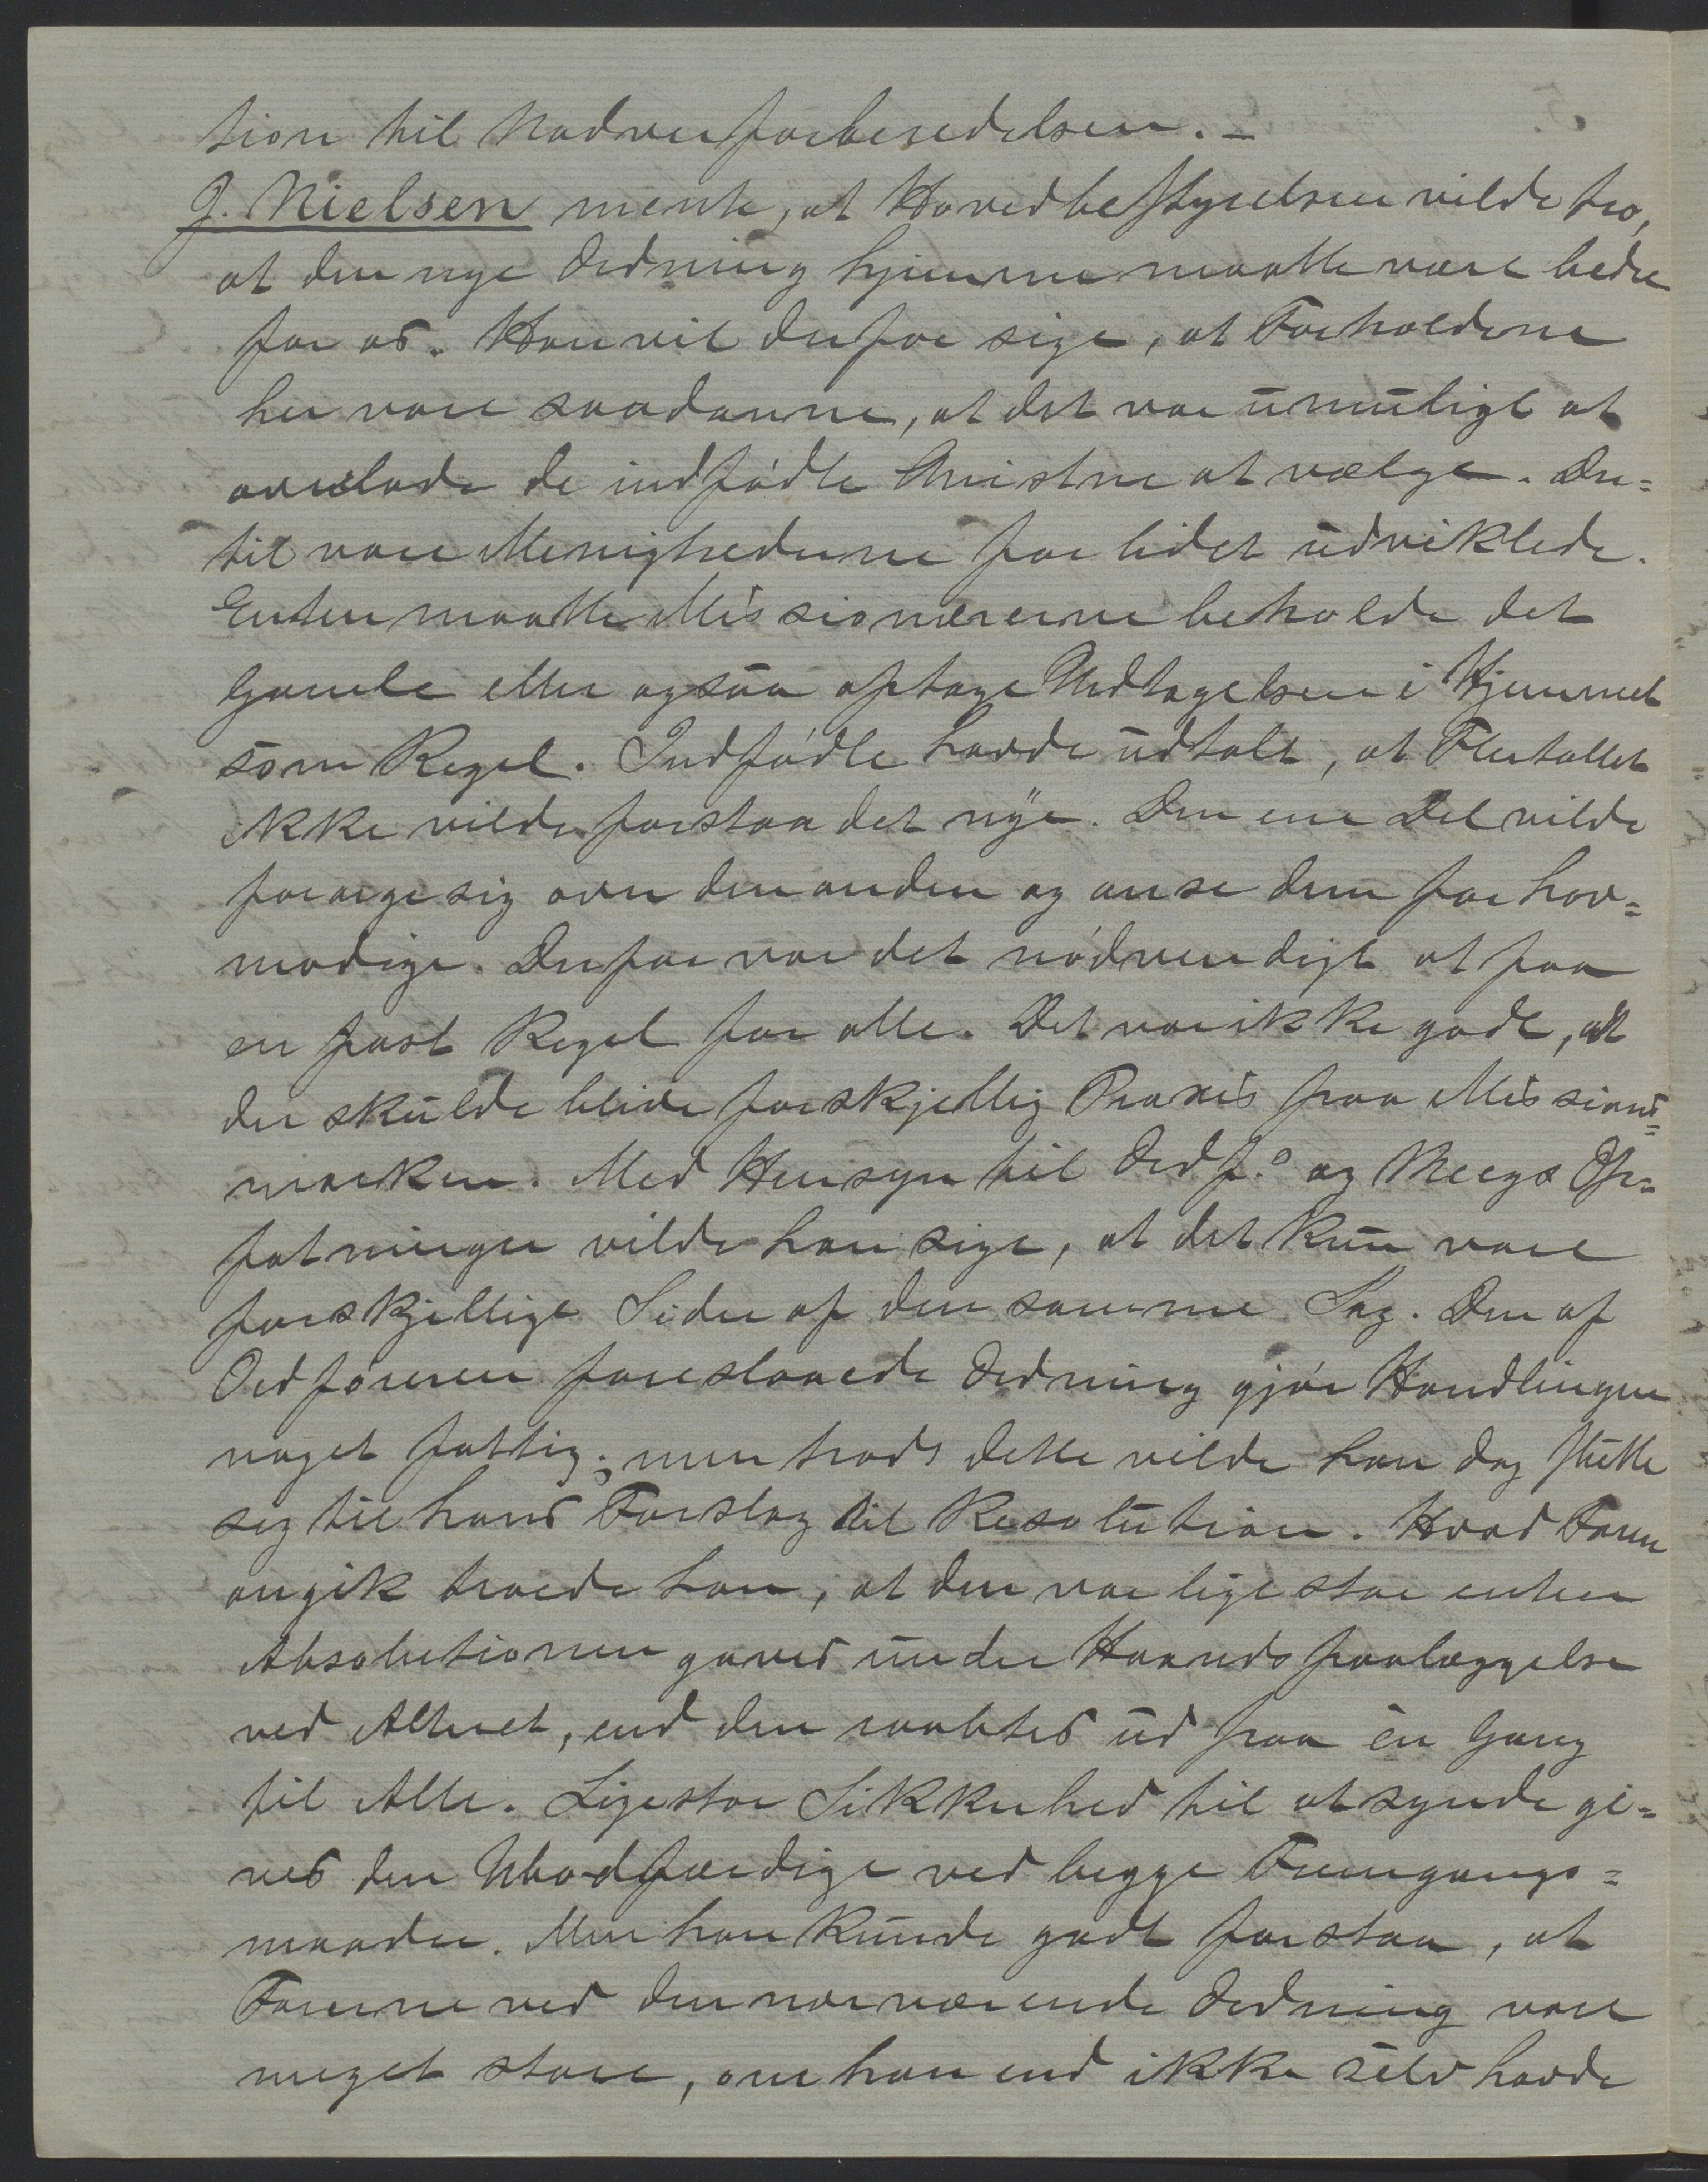 tion til Nadverforberedelsen. –
J. Nielsen mente, at Hovedbestyrelsen vilde tro,
at den nye Ordning hjemme maatte være bedre
for os. Han vil derfor sige, at Forholdene
her vare saadanne, at det var umuligt at
overlade de indfødte Kristne at vælge. Der=
til vare Menighederne for lidet udviklede.
Enten maatte Missionærerne beholde det
Gamle eller ogsaa optage Vedtagelsen i Hjemmet
som Regel. Indfødte havde udtalt, at Flertallet
ikke vilde forstaa det nye. Den ene Del vilde
forarge sig over den anden og anse dem for hov=
modige. Derfor var det nødvendigt at faa
en fast Regel for alle. Det var ikke godt, at
der skulde blive forskjellig Praxis paa Missions=
marken. Med Hensyn til Ordf.s og Meegs Op=
fatninger vilde han sige, at det kun vare
forskjellige Sider af den samme Sag. Den af
Ordføreren foreslaaede Ordning gjør Handlingen
noget fattig; men trods dette vilde han dog slutte
sig til hans Forslag til Resolution. Hvad Faren
angik troede han, at den var lige stor enten
Absolutionen gaves under Haandspaalæggelse
ved Alteret, end den raabtes ud paa èn Gang
til Alle. Ligestor Sikkerhed til at synde gi=
ves den Ubodfærdige ved begge Fremgangs=
maader. Men han kunde godt forstaa, at
Farerne ved den nærværende Ordning vare
meget store, om han end ikke selv havde